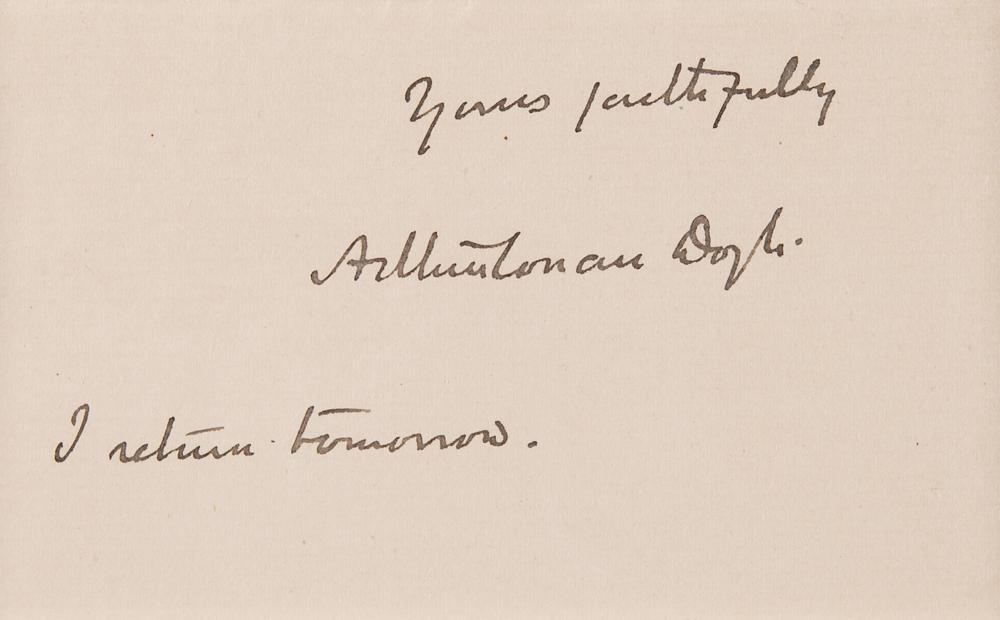 Yours faithfully
A Conan Doyle.
I return tomorrow.